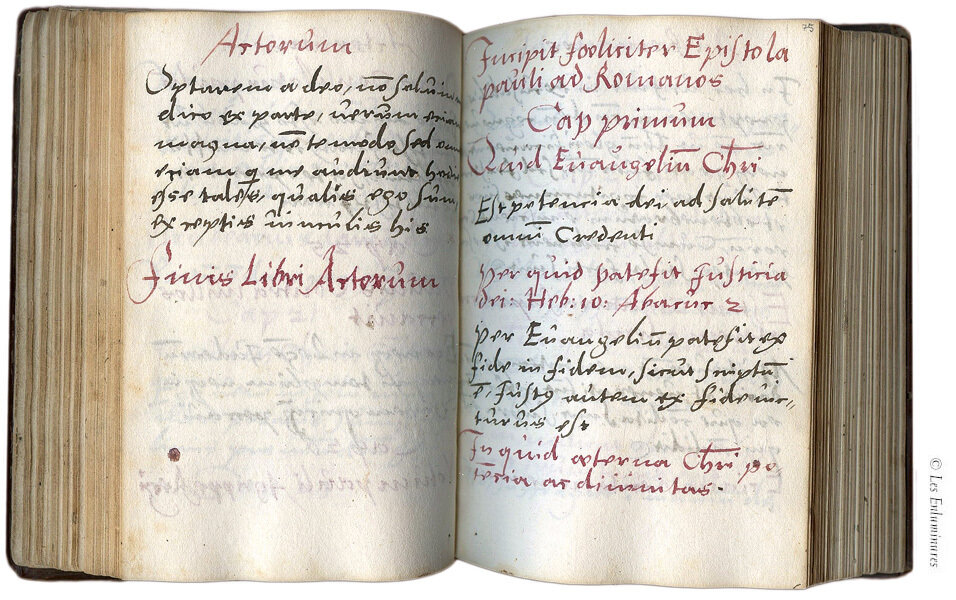 Actorum
Optarem a deo, nō solum
dico ex parte, uerum eciam
magna, nō te modo sed om
eciam q me audiunt hodie
esse tales, qualis ego sum
exceptis uinculis his
Finis Libri Actorum
75
Incipit fœliciter Epistola
pauli ad Romanos
Cap primum
Quid Euangeliū Chri
Est potencia dei ad salutē
omni Credenti
per quid patefit Justicia
dei: Heb: 10: Abacuc 2
per Euangeliū patefit ex
fide in fidem, sicut scriptū
ē, Justus autem ex fide uic-
turus est
In quid æterna Chri po
tēcia ac diuinitas.
© Les Enluminures